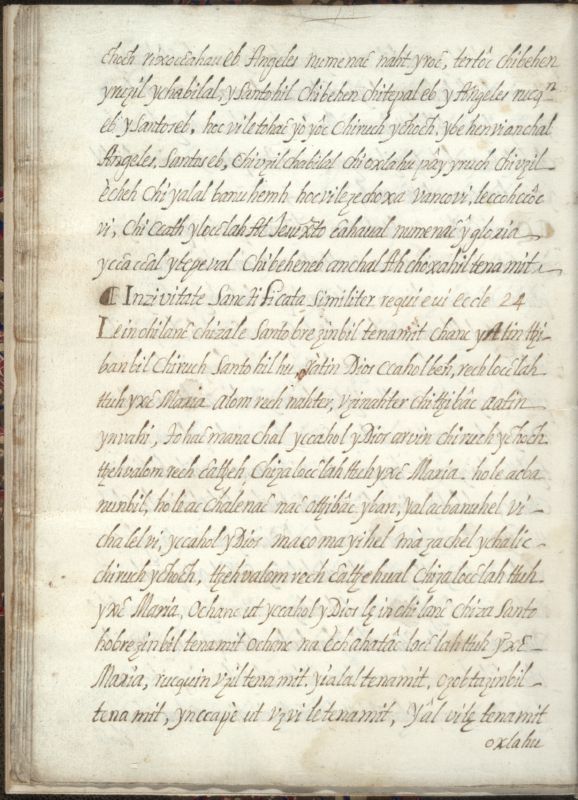 choch rixoccahau eb Angeles numenac naht yroc, tertôc chibehen
yruzil ychabilal, y Santohil Chibehen chitepal eb y Angeles rucqn
eb y Santos eb, hoc vile tohac yo yôc Chiruch ychoch, y be henri anchal
Angeles, Santos eb, chi vzil chabilal chi oxlahu pây yruch chi vzil
echeh chi yalal banuhemh hoc vile ze choxa vancovi, leccohcôc
vi, chi ccath ylocclah At Jeuxto cahaual numenac y gloria
yccaccal ytepeval Chibeheneb anchal Ah choxahil tenamit
¶ Inzivitate Sanctificata similiter requieui eccle 24
Le inchilanc chizale Santo brezinbil tenamit chanc yAtin ttzi-
banbil Chiruch Santohil hu, yatin Dios ccaholbeh, rech locclah
ttuh yxc Maria alom rech nahter, vzinahter chittzibâc aatin
ynvahi, Johac manachal yccahol y Dios arvin chiruch ychoch
ttzeh valom rech cattzeh, Chiza locclah ttuh yxc Maria. hole acba
nunbil, hole ac chalenac nac ottzibâc yban, yal acbanuhel vi-
chalel vi, yccahol y Dios maco mayihel mà zachel ychalic-
chiruch ychoch, ttzeh valom roch cattzehual Chiza locclah ttuh
yxc Maria, Ochanc ut yccahol y Dios le inchilanc Chiza Santo
hobrezinbil tenamit ochanc na cchahatâc locclah ttuh yxc
Maria, rucquin vzil tenamit, yialal tenamit, ozobtazinbil
tenamit, ynccapè ut vzvi le tenamit, Yâl vile tenamit
oxlahu